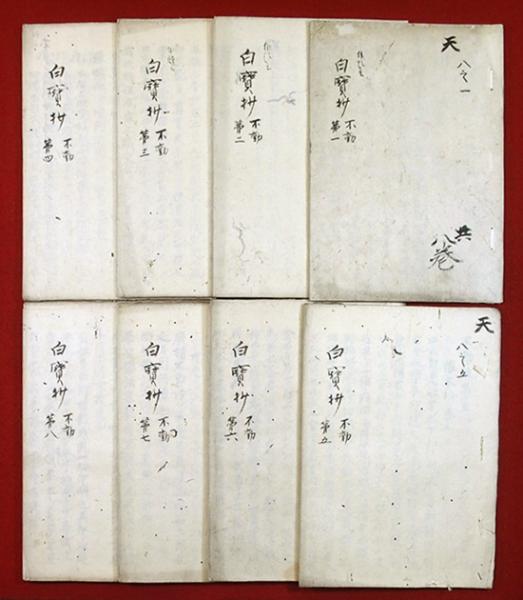 天
八之一
白寳抄 不動
第一
共
八巻
白寳抄 不動
第二
白寳抄 不動
第三
白寳抄 不動
第四
天
八之五
白寳抄 不動
第五
白寳抄 不動
第六
白寳抄 不動
第七
白寳抄 不動
第八